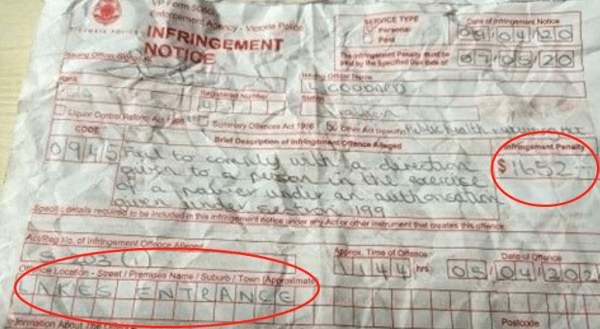 VP Form 506A
Enforcement Agency - Victoria Police
VICTORIA POLICE
INFRINGEMENT
NOTICE
SERVICE TYPE
Personal
Post
Date of Infringement Notice
05 04 20
The Infringement Penalty must be
paid by the Specified Due date of
07 05 20
Issuing Officer
Issuing Officer Name
Rank
Registered Number
Liquor Control Reform Act 1998
Summary Offences Act 1966
Other Act (specify)
Public health
CODE
0945
Brief Description of Infringement Offence Alleged
Fail to comply with a direction
given to a person in the exercise
of a power under an authorisation
given under section 199
Infringement Penalty
$1652
Specific details required to be included in this infringement notice under any Act or other instrument that creates this offence.
Act/Reg No. of Infringement Offence Alleged
S 203 (1)
Approx. Time of Offence
1144 hrs
Date of Offence
05 04 202
Offence Location - Street / Premises Name / Suburb / Town (Approximate
LAKES ENTRANCE
Postcode
Information About